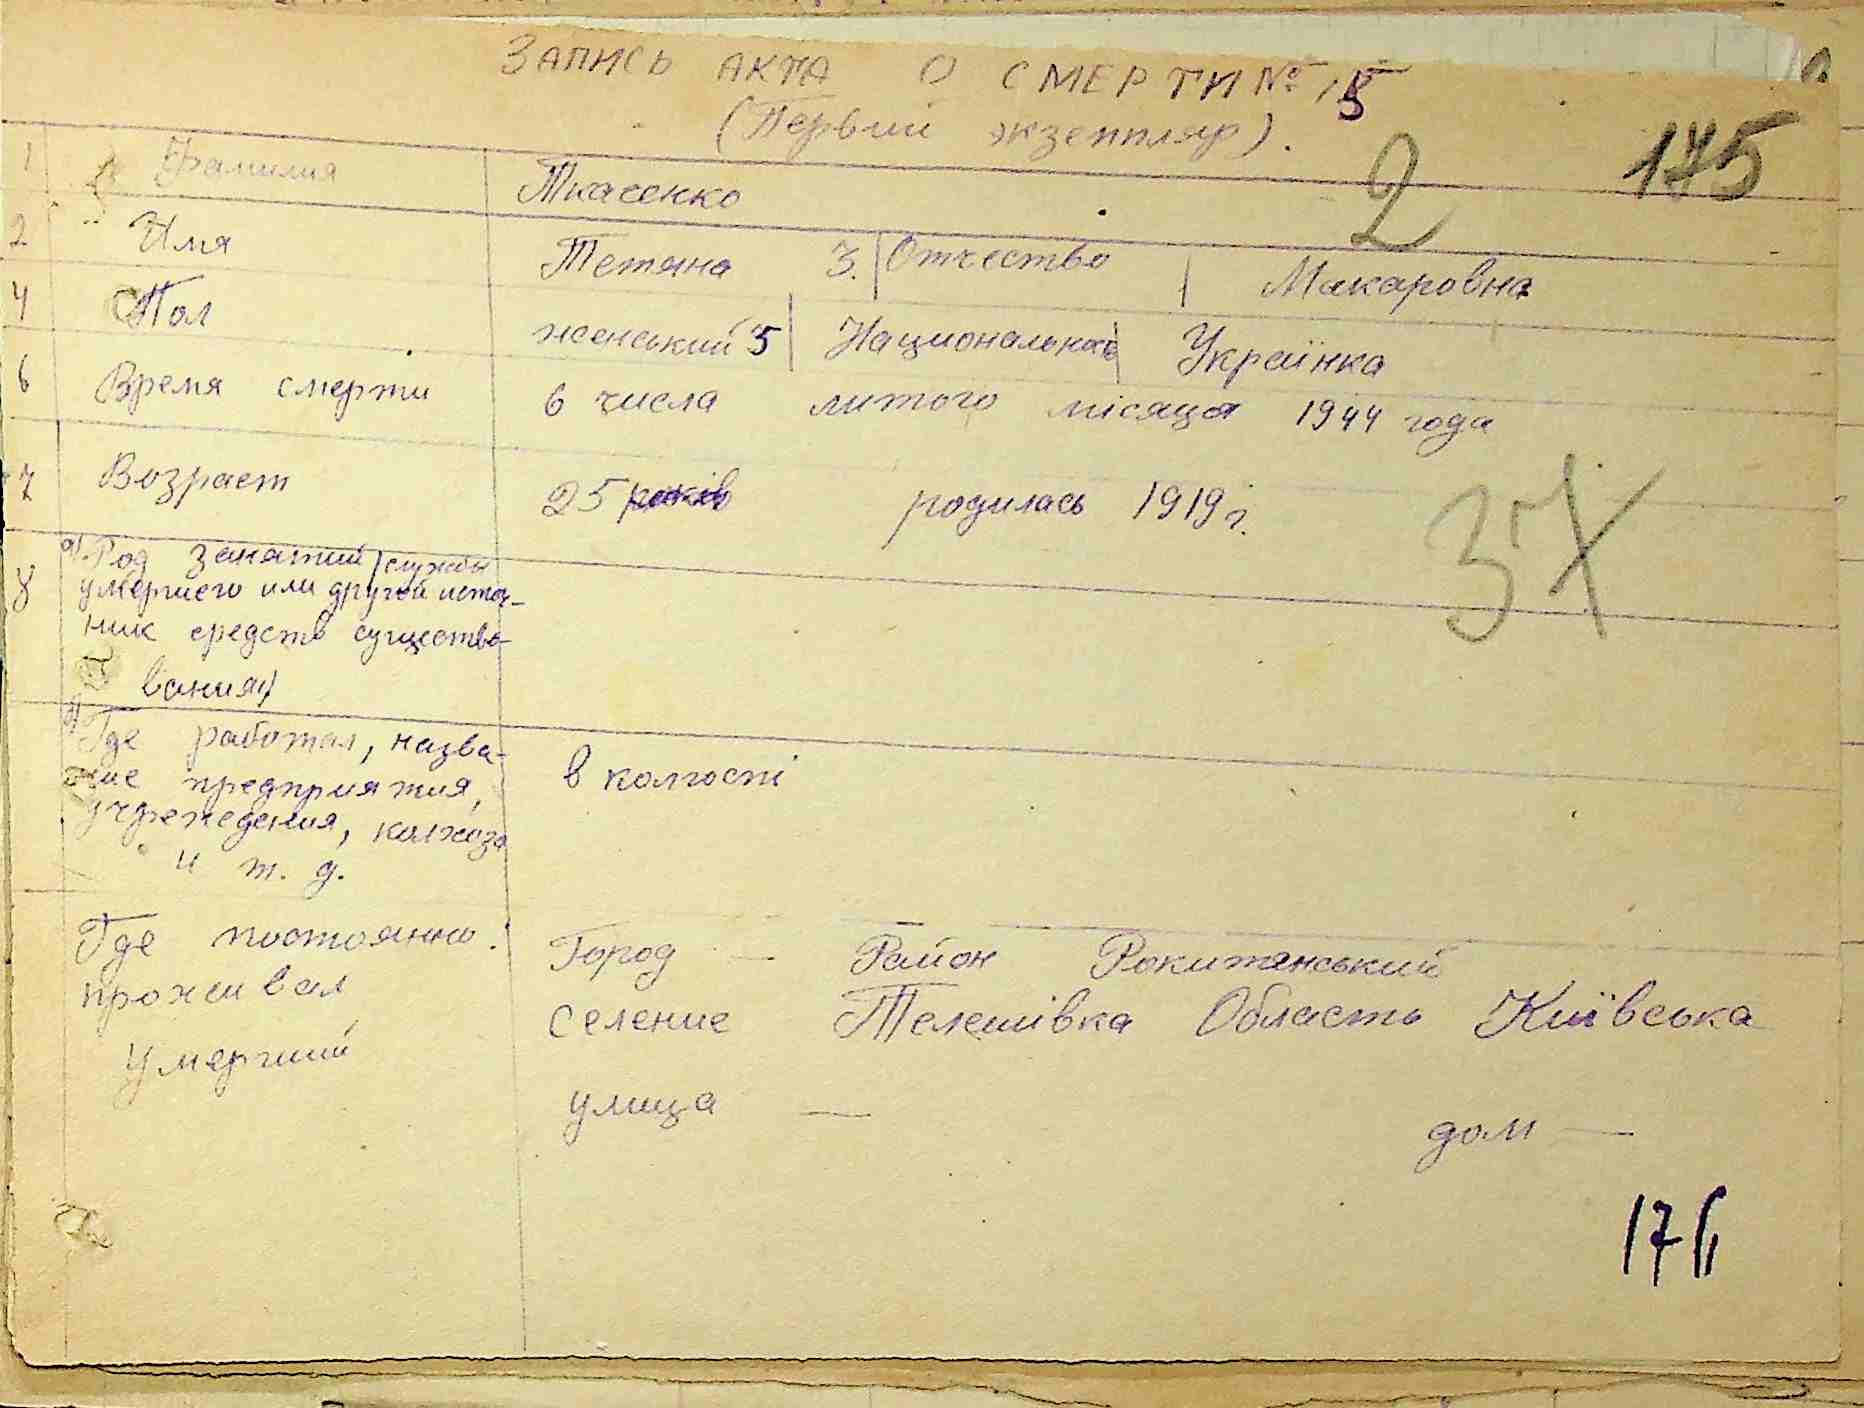 ЗАПИСЬ АКТА О СМЕРТИ № 15
(Первий экземпляр).
2 175
1 Фамилия Ткасенко
2 Имя Тетяна 3. Отчество Макаровна
4 Пол женський 5 Национальность Українка
6 Время смерти 6 числа лютого місяця 1944 года
7 Возраст 25 років родилась 1919 г.
37
8 а) Род занятий (службы
умершего или другой источ-
ник средств существо-
вания)
б) Где работал, назва-
ние предприятия,
учреждения, колхоза
и т. д.
в колгоспі
Где постоянно
проживал
умерший
Город — Район Рокитянський
селение Телешівка Область Київська
улица — дом —
176